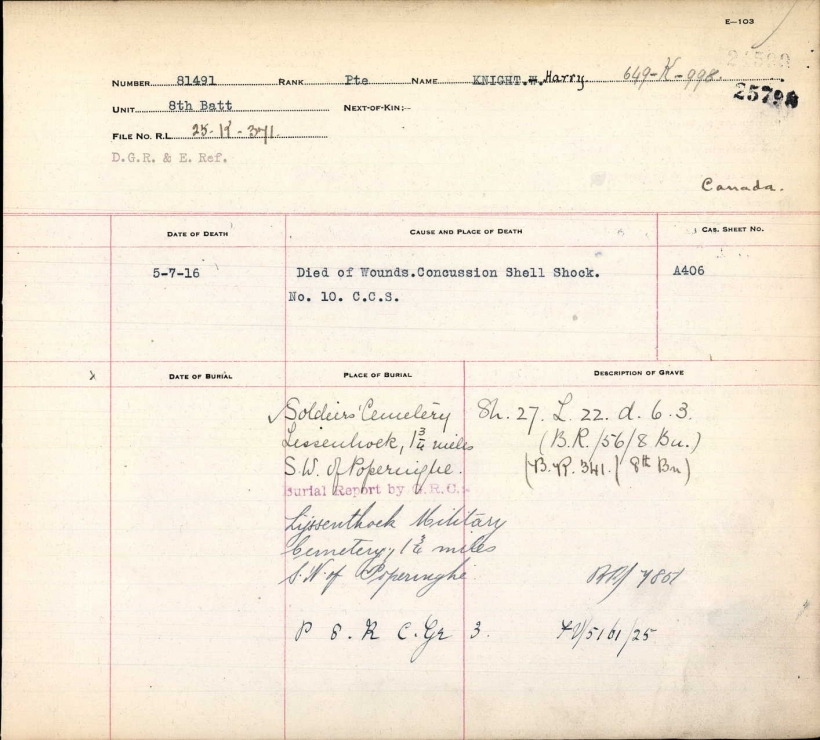 E—103
NUMBER 81491 RANK Pte NAME KNIGHT. Harry. 649-K-998.
UNIT 8th Batt NEXT-OF-KIN:—
FILE NO. R.L. 25-K-371.
D.G.R. & E. Ref.
Canada.
DATE OF DEATH CAUSE AND PLACE OF DEATH CAS. SHEET NO.
5-7-16 Died of Wounds.Concussion Shell Shock. A406
No. 10. C.C.S.
x DATE OF BURIAL PLACE OF BURIAL DESCRIPTION OF GRAVE
Soldiers' Cemetery Sh. 27. L. 22. d. 6.3.
Lissenhoek, 1¾ miles (B.R./56/8 Bn.)
S.W. of Poperinghe. (B.R. 341. / 8th Bn)
Burial Report by G.R.C:-
Lijssenthoek Military
Cemetery, 1¾ miles
S.W. of Poperinghe.
P 8. R C. Gr 3.